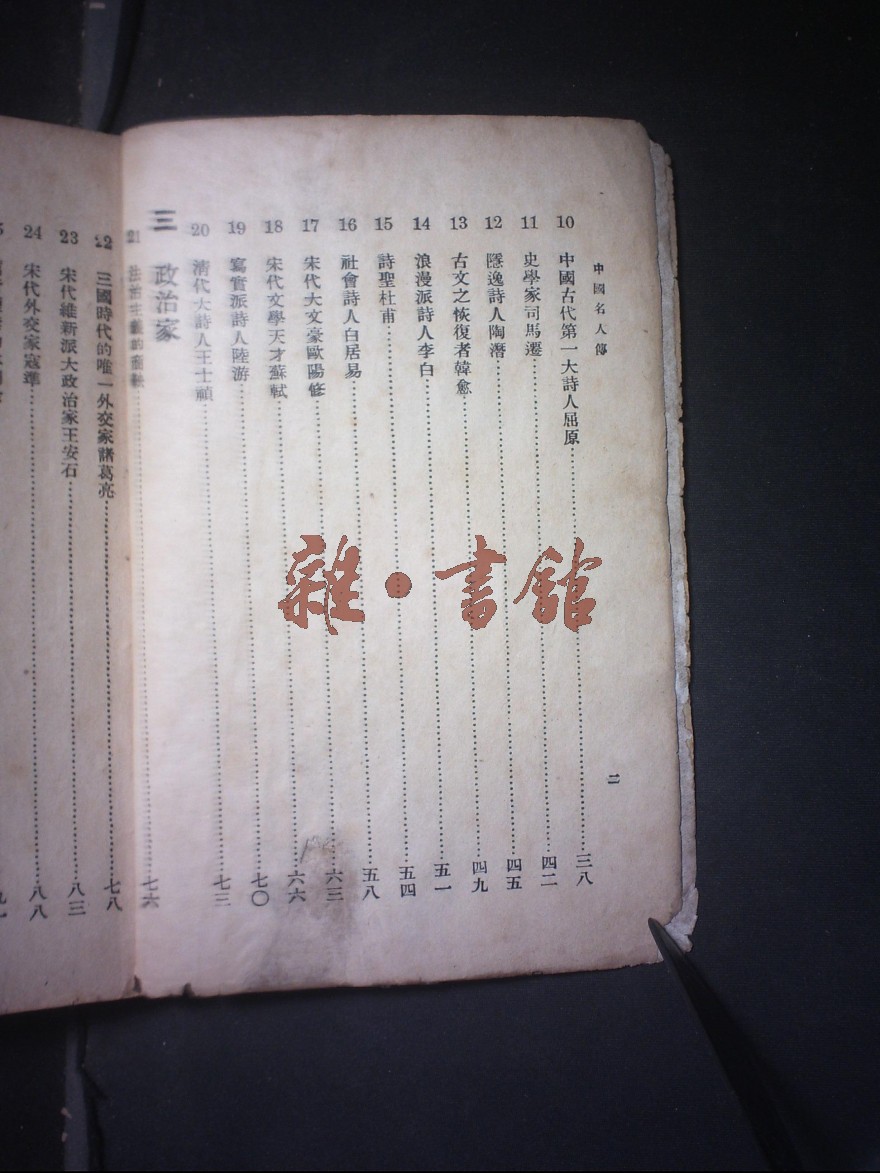 中國名人傳
二
10 中國古代第一大詩人屈原 三八
11 史學家司馬遷 四二
12 隱逸詩人陶潛 四五
13 古文之恢復者韓愈 四九
14 浪漫派詩人李白 五一
15 詩聖杜甫 五四
16 社會詩人白居易 五八
17 宋代大文豪歐陽修 六三
18 宋代文學天才蘇軾 六六
19 寫實派詩人陸游 七〇
20 清代大詩人王士禎 七三
三 政治家
21 七六
22 三國時代的唯一外交家諸葛亮 七八
23 宋代維新派大政治家王安石 八三
24 宋代外交家寇準 八八
雜·書館